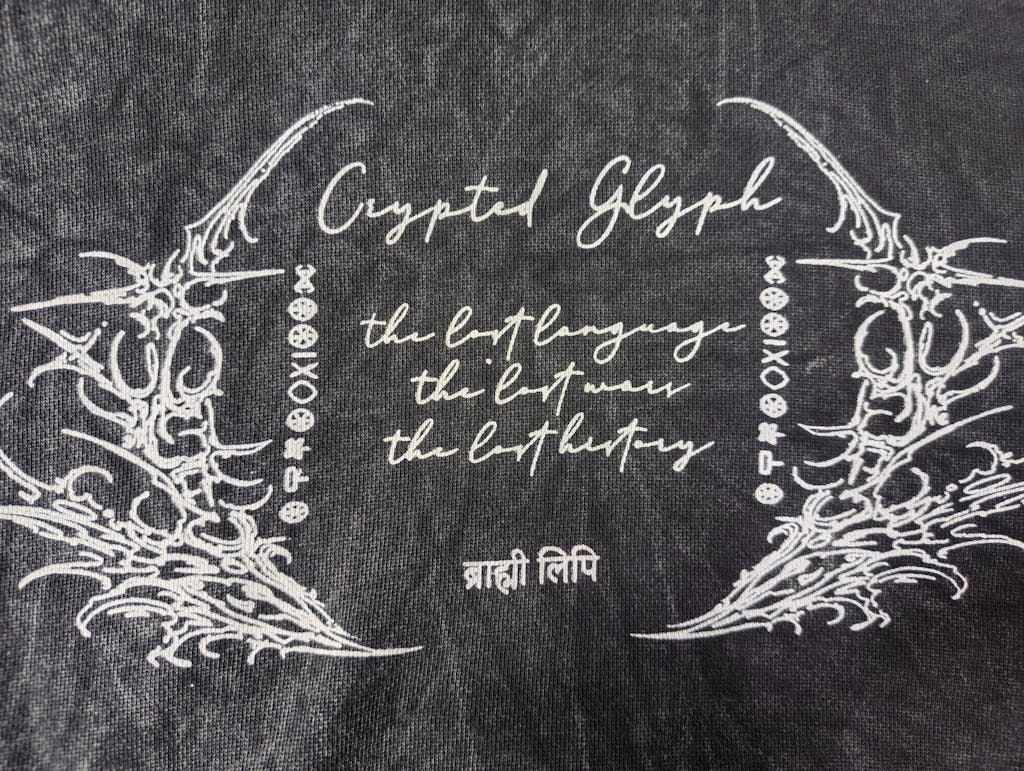 Crypted Glyph
the lost language
the lost wars
the lost history
ब्राह्मी लिपि